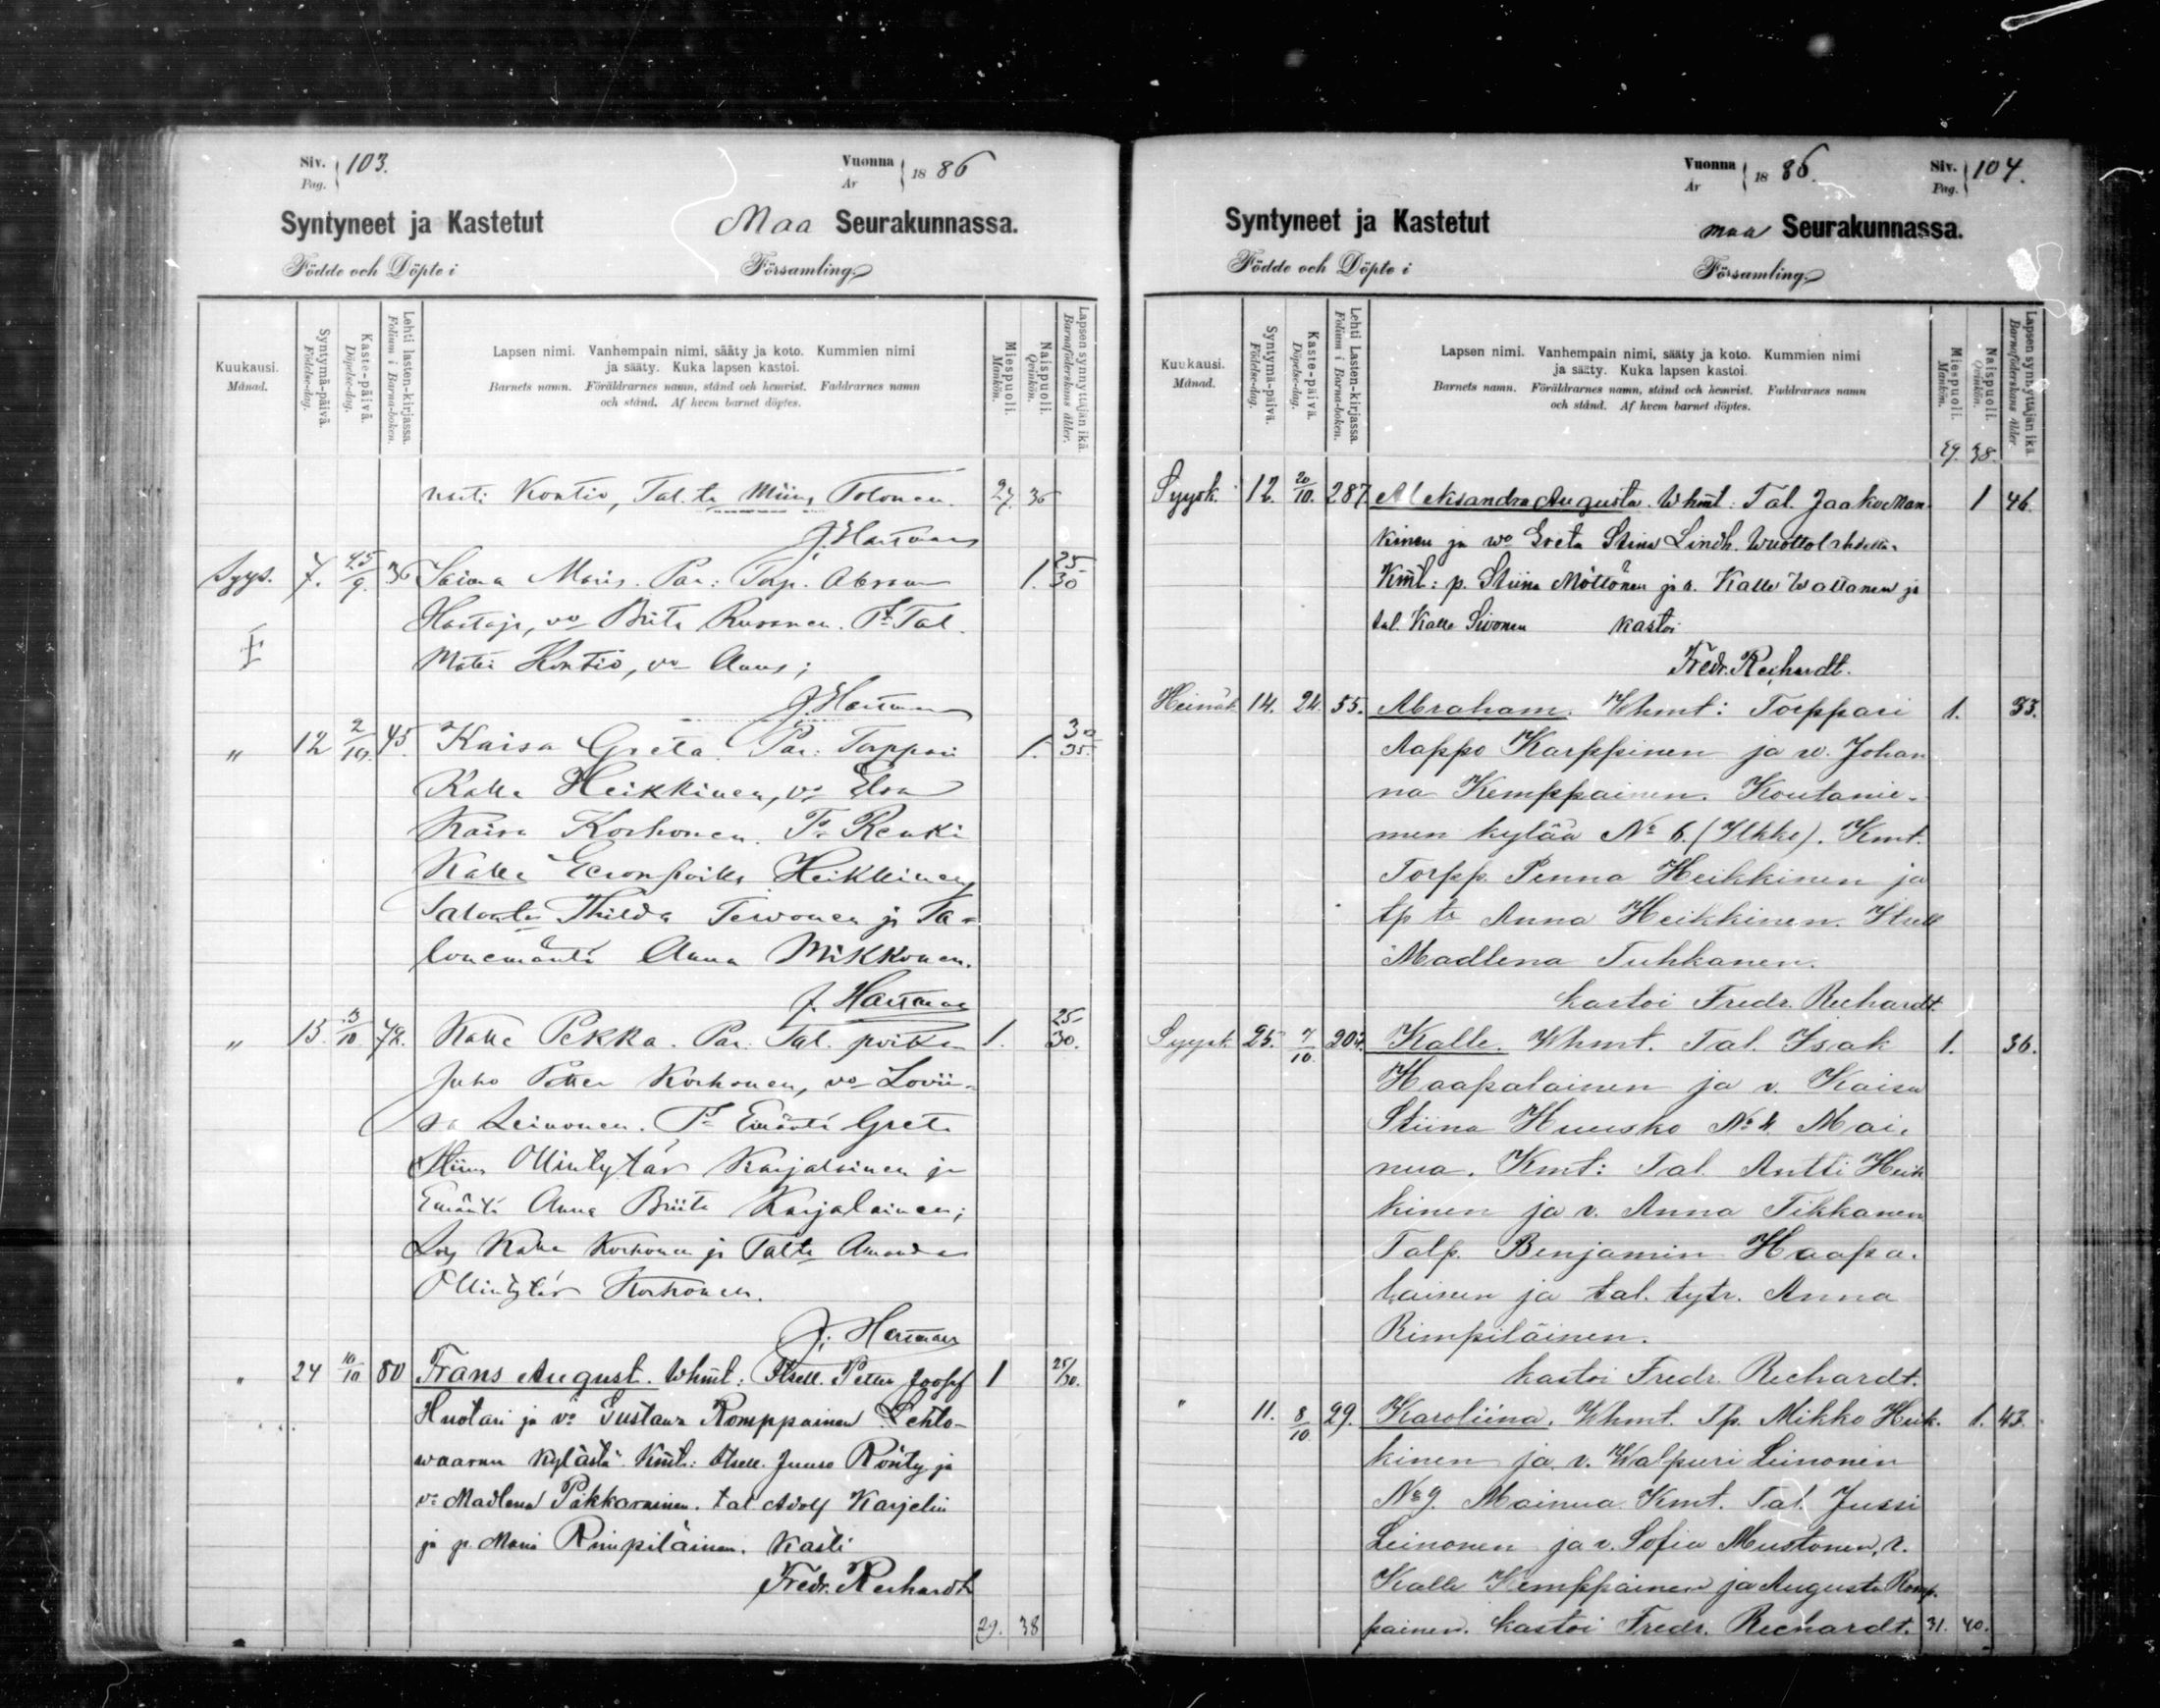 Siv. Pag. 103. Vuonna År 1886
Syntyneet ja Kastetut Maa Seurakunnassa.
Födde och Döpte i Församling
Kuukausi. Månad. Syntymä-päivä. Födelse-dag. Kaste-päivä. Döpelse-dag. Lehti lasten-kirjassa. Folium i Barna-boken. Lapsen nimi. Vanhempain nimi, sääty ja koto. Kummien nimi ja sääty. Kuka lapsen kastoi. Barnets namn. Föräldrarnes namn, stånd och hemvist. Faddrarnes namn och stånd. Af hvem barnet döptes. Miespuoli. Mankön. Naispuoli. Qvinkön. Lapsen synnyttäjän ikä. Barnaföderskans ålder.
Kontio, Tal. ta Miina Tolonen. 27. 36
J. Hartman
Syys. 7. 25/9. 36 Saima Maria. Par: Torp. Abram 1. 25-30
Hartaja, vo Brita Russanen. Tal.
Matti Kontio, vo Anna;
J. Hartman
„ 12 2/10. 45. Kaisa Greta. Par: Torppari 1. 30-35.
Kalle Heikkinen, vo Elsa
Kaisa Korhonen. Renki
Kalle Heikkinen,
Thilda Tervonen ja Ta-
lonemäntä Anna Mikkonen.
J. Hartman
„ 15. 3/10 72. Kalle Pekka. Par: Tal. poika 1. 25-30.
Juho Petter Korhonen, vo Lovii-
sa Leinonen. Emäntä Greta
Stiina Ollintytär Karjalainen ja
Emäntä Anna Briita Karjalainen;
Kalle Korhonen ja Amanda
Ollintytär Korhonen.
J. Hartman
„ 24 10/10 80 Frans August. Whmt: Itsell. Petter Joosef 1 25/30.
Huotari ja vo Gustava Romppainen Lehto-
waaran kylästä. Kmt: Itsell. Juuso Rönty ja
vo Madlena Pikkarainen. tal Adolf Karjelin
ja p. Maria Rimpiläinen. Kasti
Fredr. Rechardt
29. 38
Vuonna År 1886. Siv. Pag. 104.
Syntyneet ja Kastetut maa Seurakunnassa.
Födde och Döpte i Församling
Kuukausi. Månad. Syntymä-päivä. Födelse-dag. Kaste-päivä. Döpelse-dag. Lehti Lasten-kirjassa. Folium i Barna-boken. Lapsen nimi. Vanhempain nimi, sääty ja koto. Kummien nimi ja sääty. Kuka lapsen kastoi. Barnets namn. Föräldrarnes namn, stånd och hemvist. Faddrarnes namn och stånd. Af hvem barnet döptes. Miespuoli. Mankön. Naispuoli. Qvinkön. Lapsen synnyttäjän ikä. Barnaföderskans ålder.
29. 38.
Syysk. 12. 20/10. 287 Aleksandra Augusta. Whmt: Tal. Jaakko Man- 1 46.
kinen ja wo Greta Stina Lindh. Wuottolahdella.
Kmt: p. Stiina Möttönen ja r. Kalle Wattanen ja
tal. Kalle Sivonen kastoi
Fredr. Rechardt.
Heinäk. 14. 24. 55. Abraham. Whmt: Torppari 1. 33.
Aappo Karppinen ja w. Johan
na Kemppainen. Koutanie-
men kylää No 6. Kmt.
Torpp. Penna Heikkinen ja
tp tr Anna Heikkinen. Itsell
Madlena Tuhkanen.
kastoi Fredr. Rechardt.
Syysk. 25. 7/10. 202. Kalle. Whmt. Tal. Isak 1. 36.
Haapalainen ja v. Kaisa
Stiina Huusko No 4 Mai-
nua. Kmt: Tal. Antti Heik
kinen ja v. Anna Tikkanen
Talp. Benjamin Haapa-
lainen ja tal. tytr. Anna
Rimpiläinen.
kastoi Fredr. Rechardt.
„ 11. 8/10. 29. Karoliina. Whmt. Tp. Mikko Heik- 1. 43.
kinen ja v. Walpuri Leinonen
No 9. Mainua Kmt. Tal. Jussi
Leinonen ja v. Sofia Mustonen, r.
Kalle Kemppainen ja Augusta Romp-
painen. kastoi Fredr. Rechardt. 31. 40.